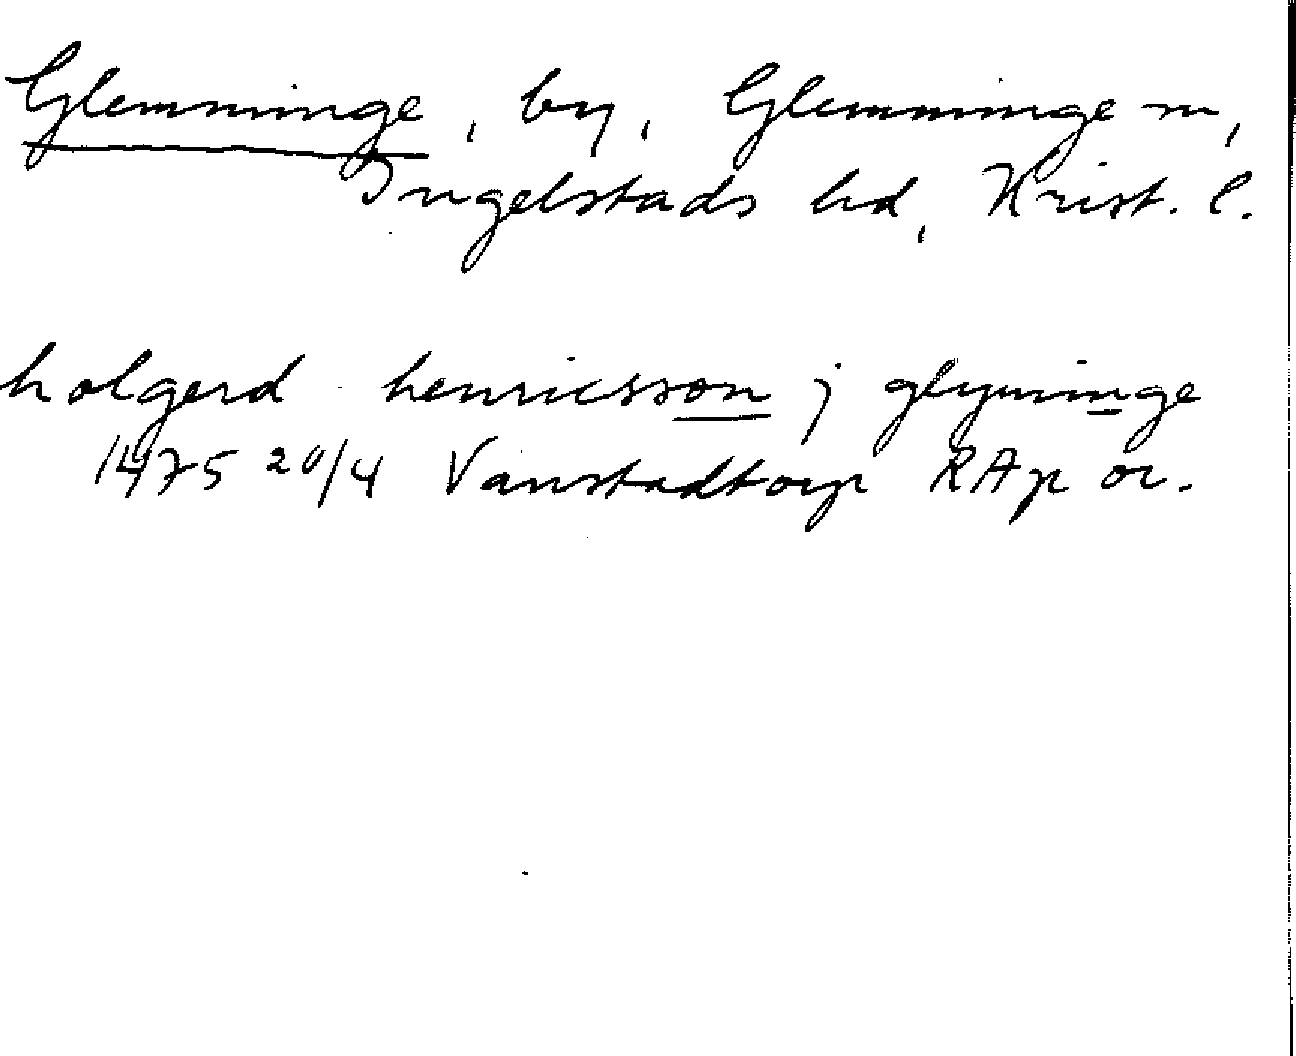 Glemminge, by, Glemminge sn,
Ingelstads hd, Krist. l.
holgerd henricsson j glyminge
1475 20/4 Vanstadtorp RAp or.